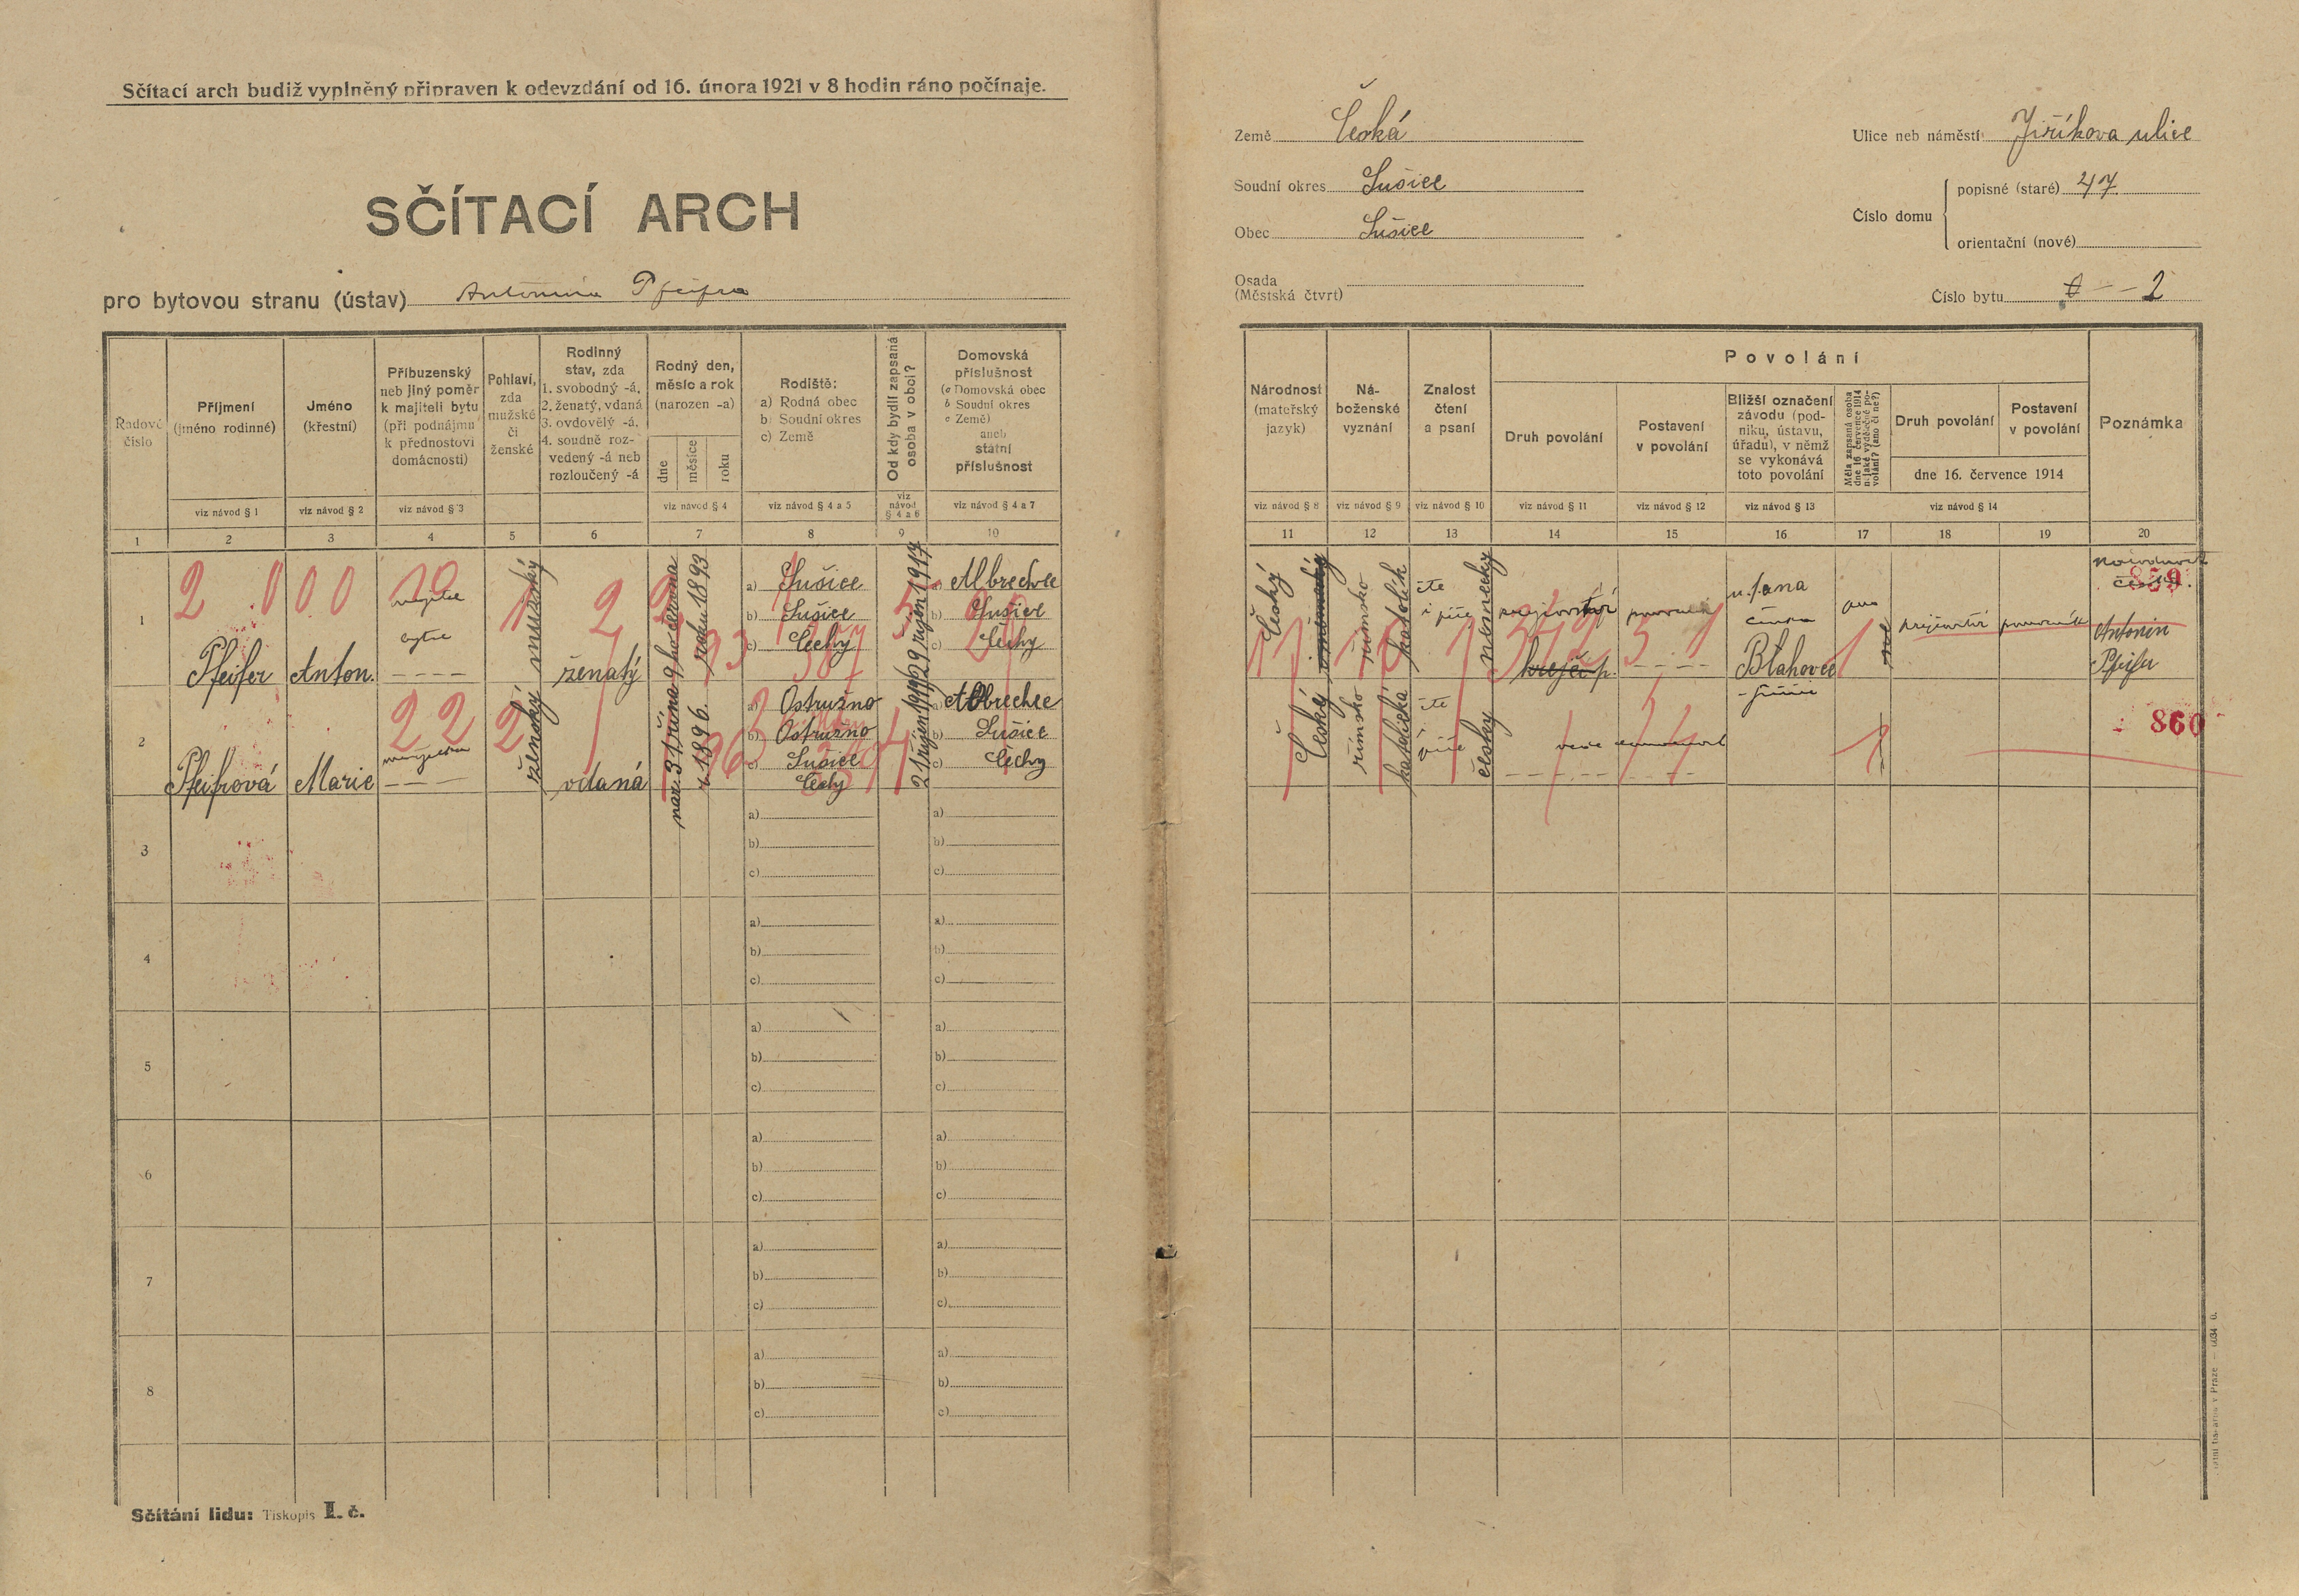 Sčítací arch budiž vyplněný připraven k odevzdání od 16. února 1921 v 8 hodin ráno počínaje.
SČÍTACÍ ARCH
pro bytovou stranu (ústav) Antonína Pfeifra
Řadové číslo
Příjmení (jméno rodinné)
Jméno (křestní)
Příbuzenský neb jiný poměr k majiteli bytu (při podnájmu k přednostovi domácnosti)
Pohlaví, zda mužské či ženské
Rodinný stav, zda 1. svobodný -á, 2. ženatý, vdaná 3. ovdovělý -á, 4. soudně rozvedený -á neb rozloučený -á
Rodný den, měsíc a rok (narozen -a)
dne měsíce roku
Rodiště: a) Rodná obec b) Soudní okres c) Země
Od kdy bydlí zapsaná osoba v obci?
Domovská příslušnost (a Domovská obec b Soudní okres c Země) aneb státní příslušnost
viz návod § 1
viz návod § 2
viz návod § 3
viz návod § 4
viz návod § 4 a 5
viz návod § 4 a 6
viz návod § 4 a 7
1 2 3 4 5 6 7 8 9 10
1
Pfeifer Anton.
majitel bytu
mužský
ženatý
9ho června roku 1893
a) Sušice
b) Sušice
c) Čechy
29 říjen 1917
a) Albrechce
b) Sušice
c) Čechy
2
Pfeifrová Marie
manželka
ženský
vdaná
nar. 31 října r. 1896.
a) Ostružno
b) Ostružno
c) Sušice
Čechy
21 říjen 1919
a) Albrechce
b) Sušice
c) Čechy
3
a)
b)
c)
a)
b)
c)
4
a)
b)
c)
a)
b)
c)
5
a)
b)
c)
a)
b)
c)
6
a)
b)
c)
a)
b)
c)
7
a)
b)
c)
a)
b)
c)
8
a)
b)
c)
a)
b)
c)
Sčítání lidu: Tiskopis I. č.
Země Česká
Soudní okres Sušice
Obec Sušice
Osada (Městská čtvrť)
Ulice neb náměstí Jiříkova ulice
Číslo domu
popisné (staré) 47
orientační (nové)
Číslo bytu 2
Národnost (mateřský jazyk)
Náboženské vyznání
Znalost čtení a psaní
Povolání
Druh povolání
Postavení v povolání
Bližší označení závodu (podniku, ústavu, úřadu), v němž se vykonává toto povolání
Měla zapsaná osoba dne 16. července 1914 nějaké výdělečné povolání? (ano či ne?)
Druh povolání
Postavení v povolání
dne 16. července 1914
Poznámka
viz návod § 8
viz návod § 9
viz návod § 10
viz návod § 11
viz návod § 12
viz návod § 13
viz návod § 14
11 12 13 14 15 16 17 18 19 20
Český
římsko katolík
čte i píše
německy
krejčovství
krejčí p.
pomocník
u Jana
Blahovce
Sušice
ano
krejčovství
pomocník
národnost česká.
859
Antonín
Pfeifer
Český
římsko katolická
čte i píše
česky
860